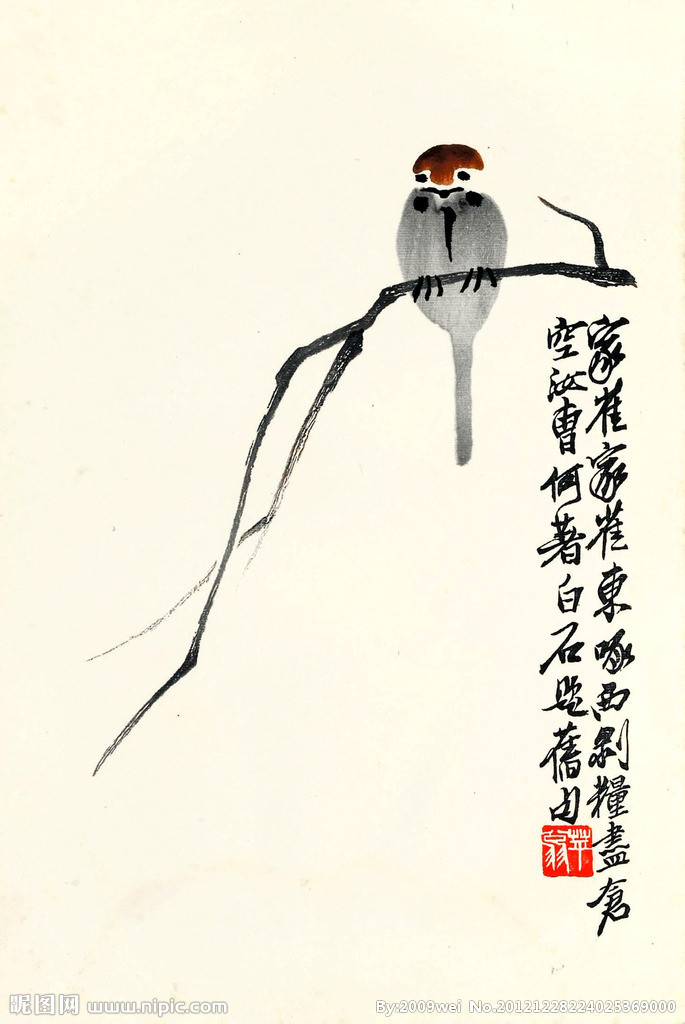 家雀家雀東啄西剝糧盡倉
空汝曹何著白石題舊句
萍翁
昵图网 www.nipic.com
By:2009wei No.20121228224025369000